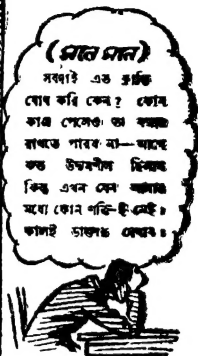 (মনে মনে)
সবদাই এত ক্লান্তি
বোধ করি কেন? কোন
কাজ পেলেও তা বজায়
রাখতে পারব না—আগে
কত উদ্যমশীল ছিলাম
কিন্তু এখন যেন আমার
মধ্যে কোন শক্তি-ই নেই।
কালই ডাক্তার দেখাব।